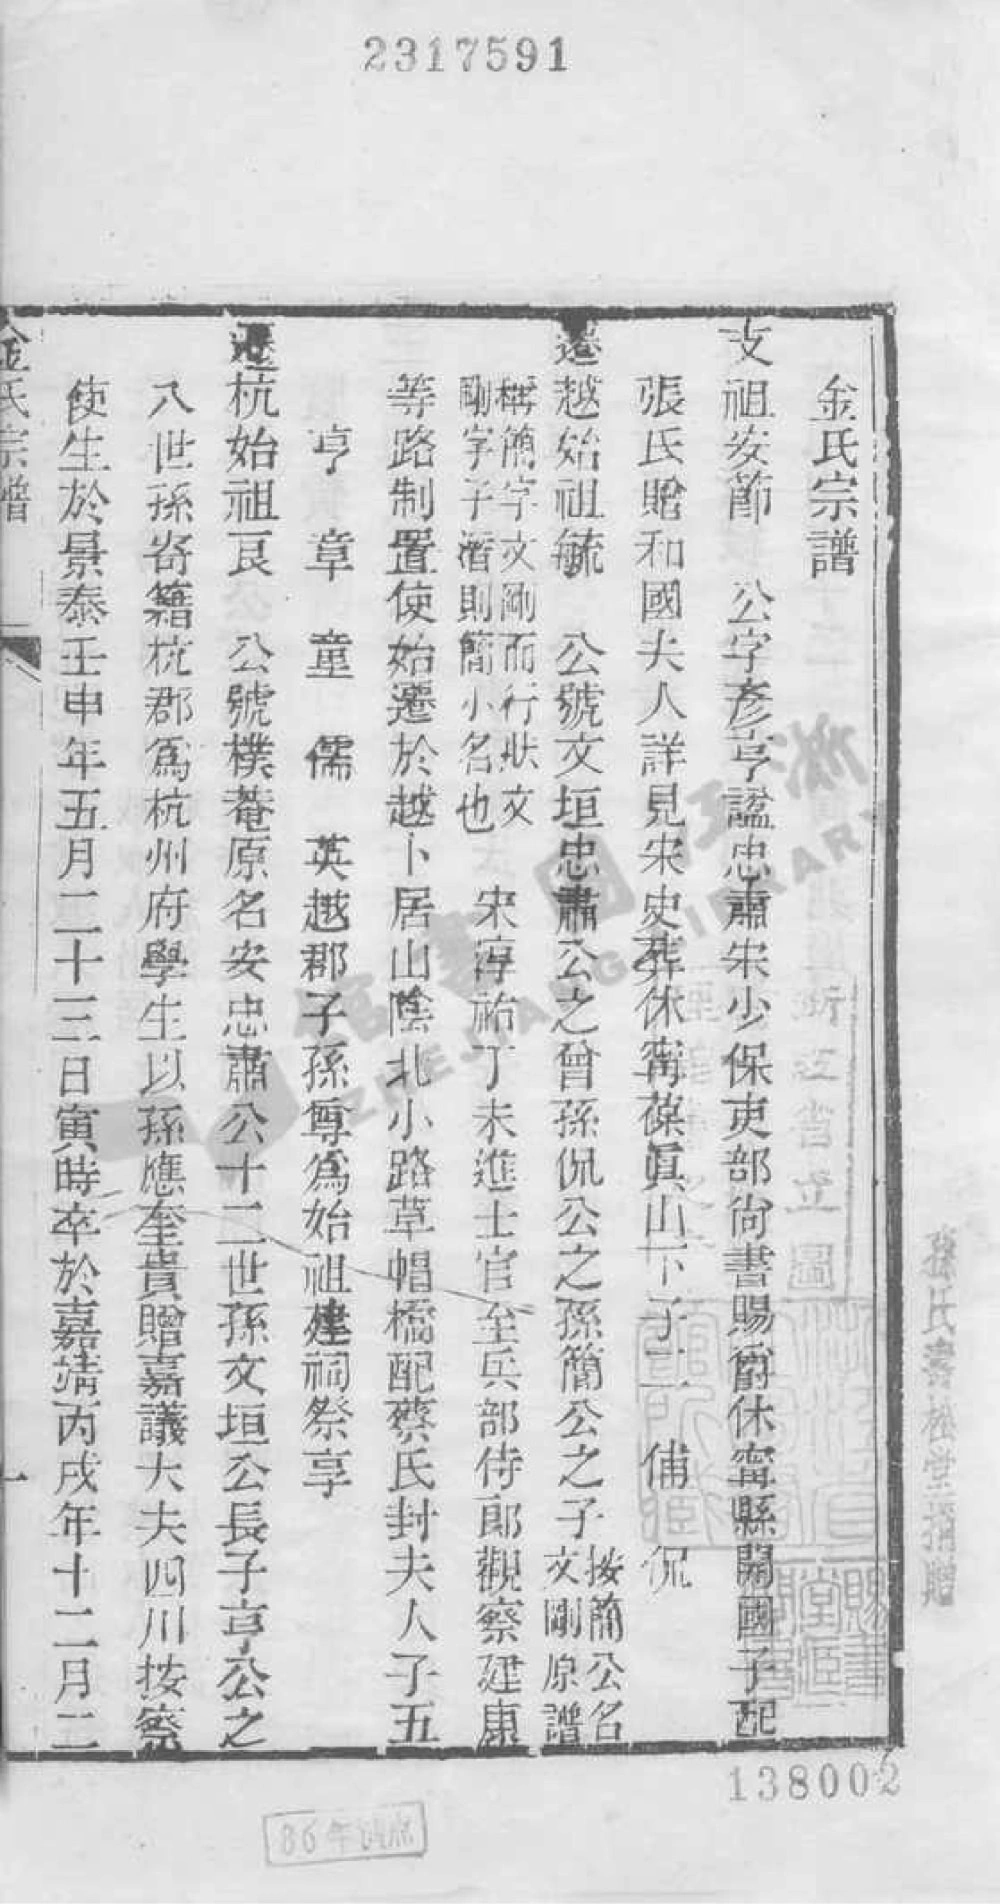 2317591
金氏宗譜
支祖安節　公字彥亨諡忠肅宋少保吏部尚書賜爵休甯縣開國子配
張氏贈和國夫人詳見宋史葬休甯葆眞山下子二　俌　侃
遷越始祖毓　公號文垣忠肅公之曾孫侃公之孫簡公之子按簡公名文剛原譜
稱簡字文剛而行狀文剛字子潛則簡小名也　宋淳祐丁未進士官至兵部侍郎觀察建康
等路制置使始遷於越卜居山陰北小路草帽橋配蔡氏封夫人子五
亨　章　童　儒　英越郡子孫尊爲始祖建祠祭享
遷杭始祖良　公號樸菴原名安忠肅公十二世孫文垣公長子亨公之
八世孫寄籍杭郡爲杭州府學生以孫應奎貴贈嘉議大夫四川按察
使生於景泰壬申年五月二十三日寅時卒於嘉靖丙戌年十二月二
金氏宗譜
一
孫氏壽松堂捐贈
138002
浙江圖書館
ZHEJIANG LIBRARY